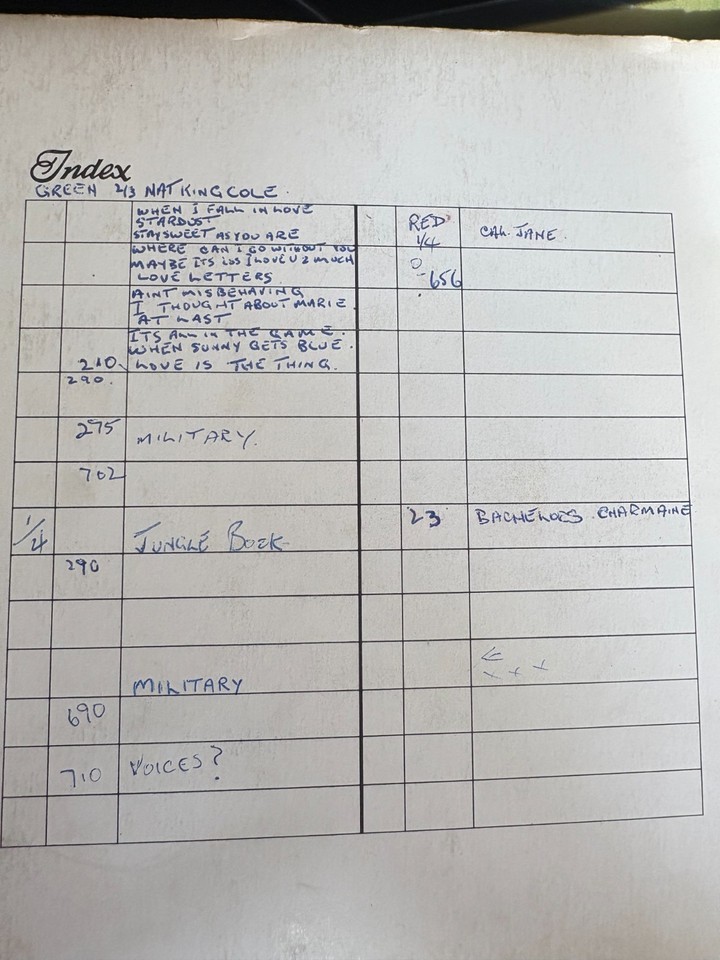 Index
GREEN 2/3 NAT KING COLE.
WHEN I FALL IN LOVE
STARDUST
STAY SWEET AS YOU ARE
WHERE CAN I GO WITHOUT YOU
MAYBE ITS COS I LOVE U 2 MUCH
LOVE LETTERS
AINT MISBEHAVING
I THOUGHT ABOUT MARIE.
AT LAST
ITS ALL IN THE GAME.
WHEN SUNNY GETS BLUE.
210 LOVE IS THE THING.
290.
275 MILITARY.
702
1/4 JUNGLE BOOK
290
MILITARY
690
710 VOICES?
RED
1/4 CAL. JANE.
0
-656
23 BACHELORS. CHARMAINE